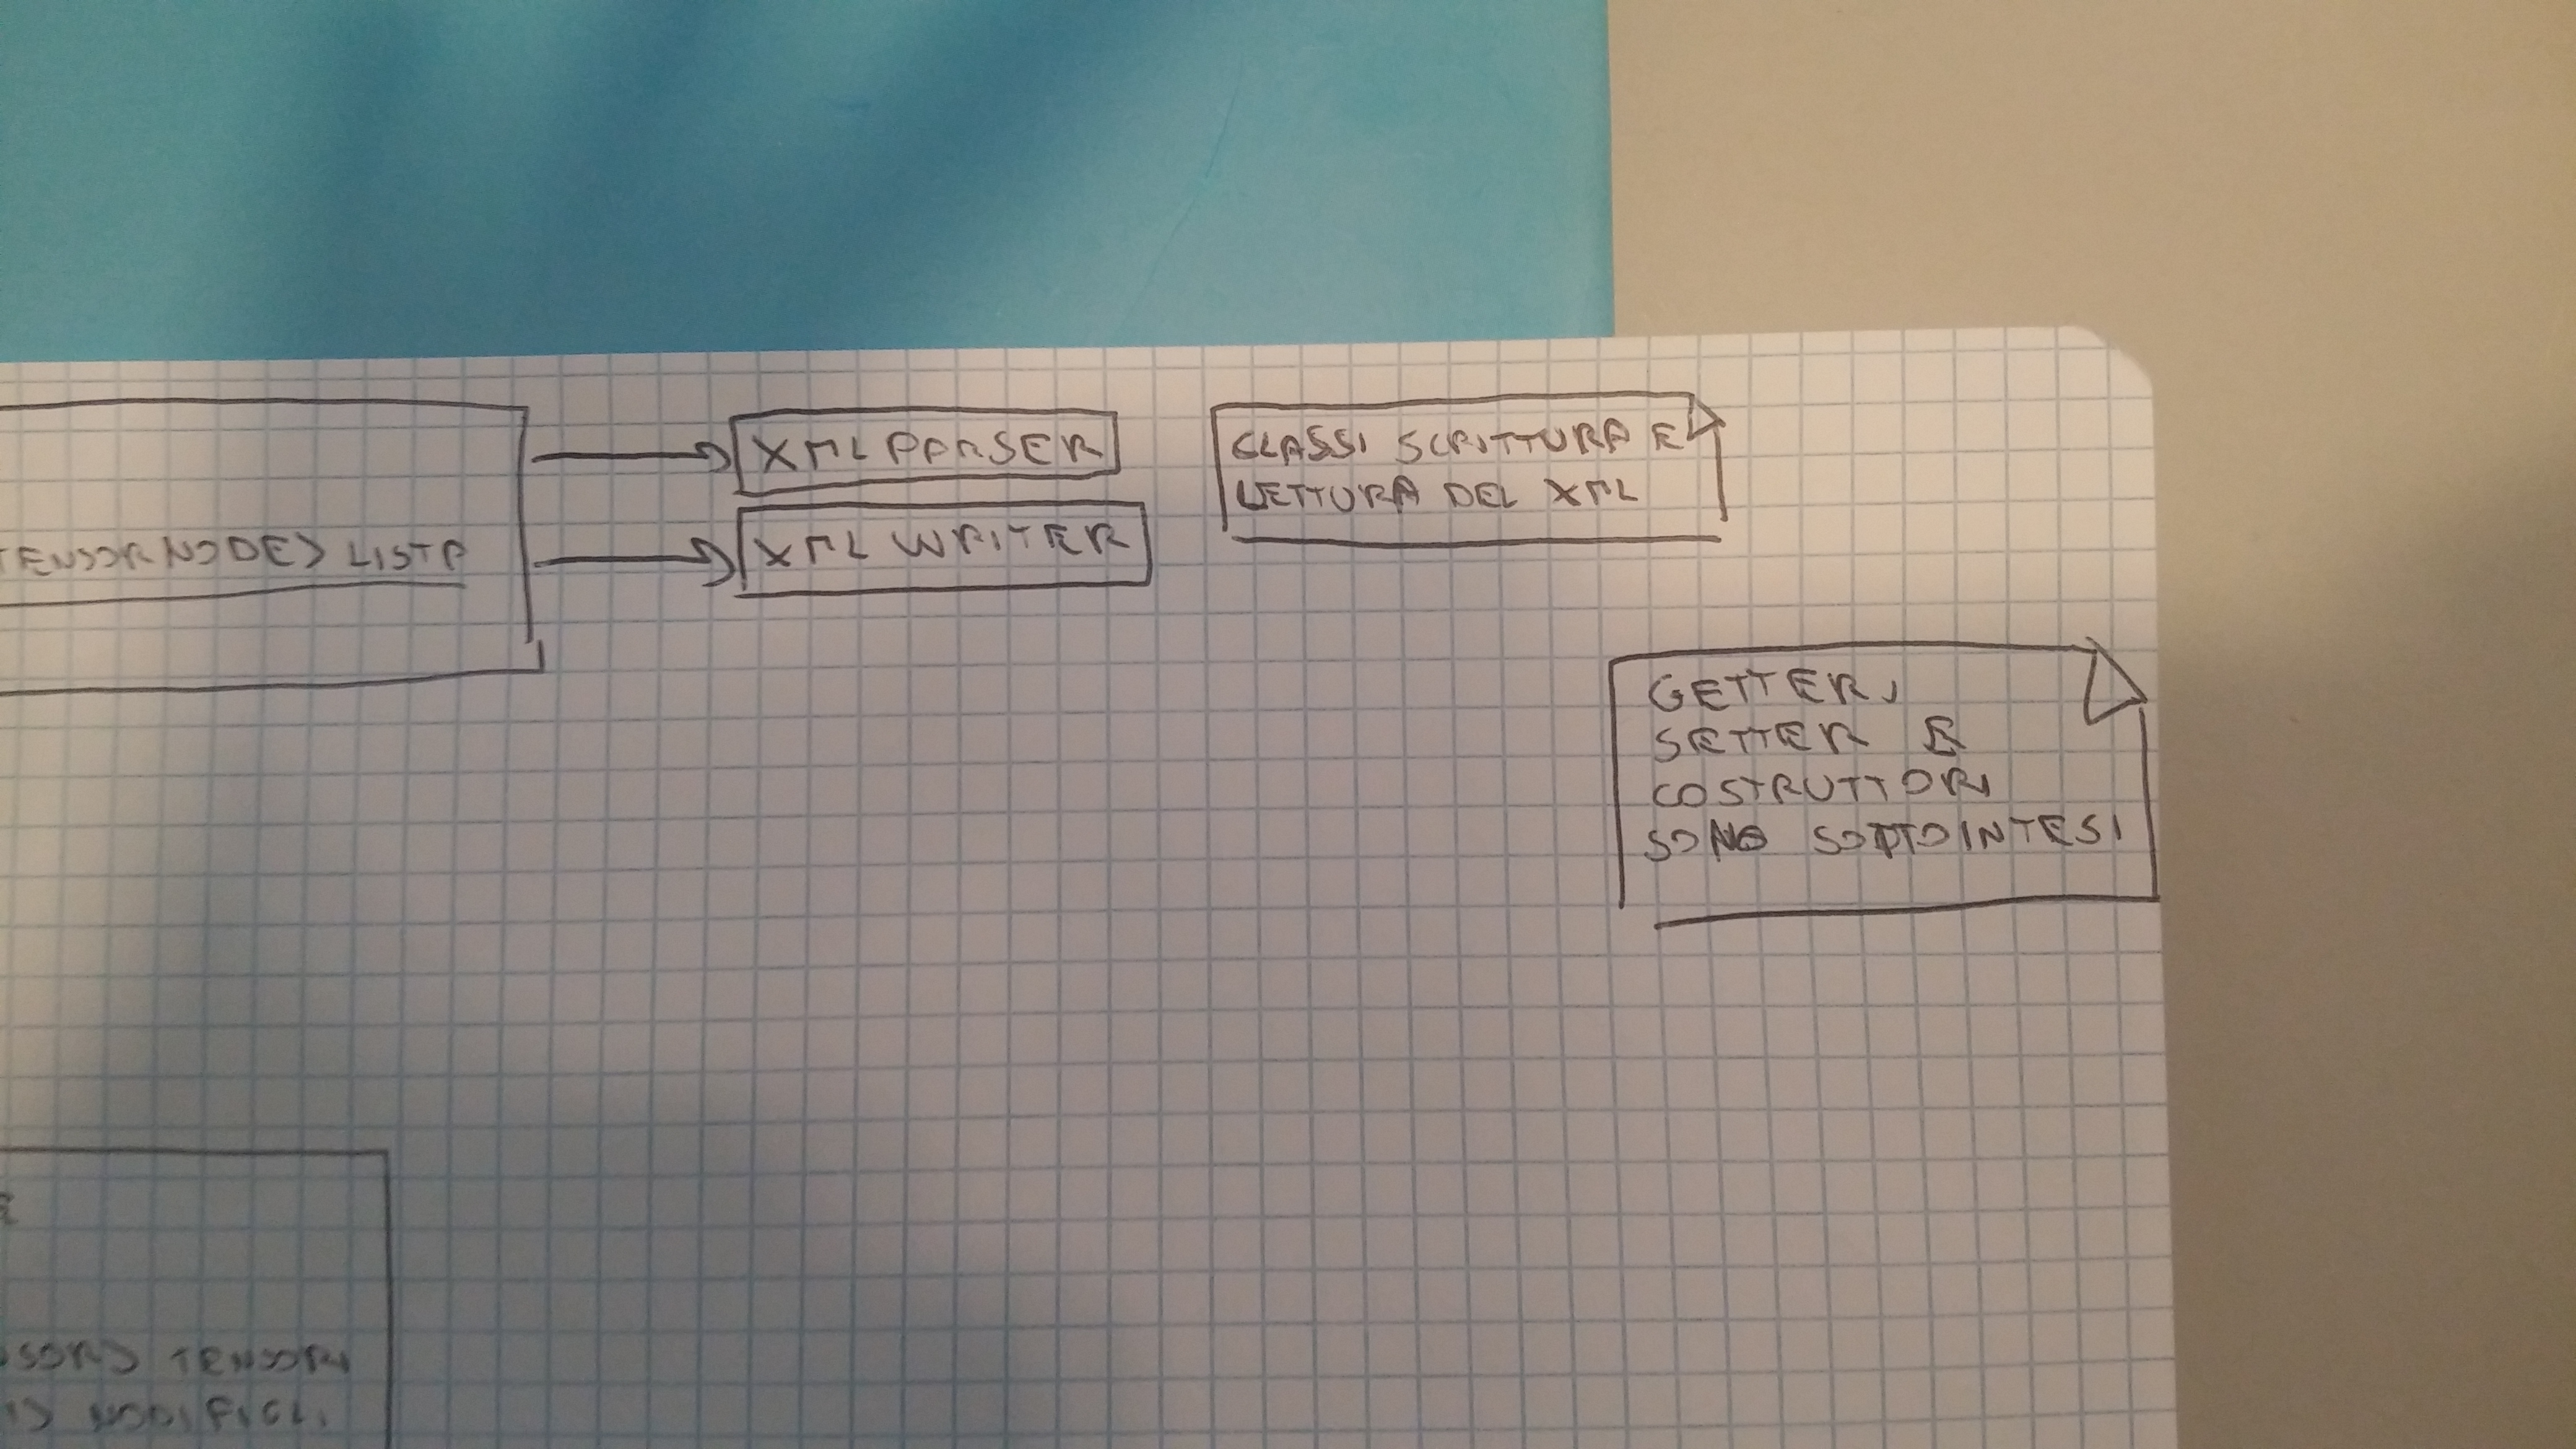 TENSORNODE> LISTA
XML PARSER
XML WRITER
CLASSI SCRITTURA E
LETTURA DEL XML
GETTER,
SETTER E
COSTRUTTORI
SONO SOTTOINTESI
TENSORI
NODI FIGLI